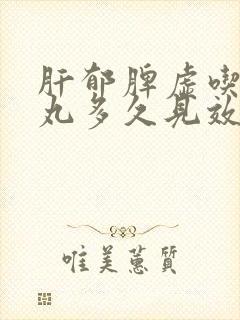 肝郁脾虚喫
丸多久見效
唯美蕙質